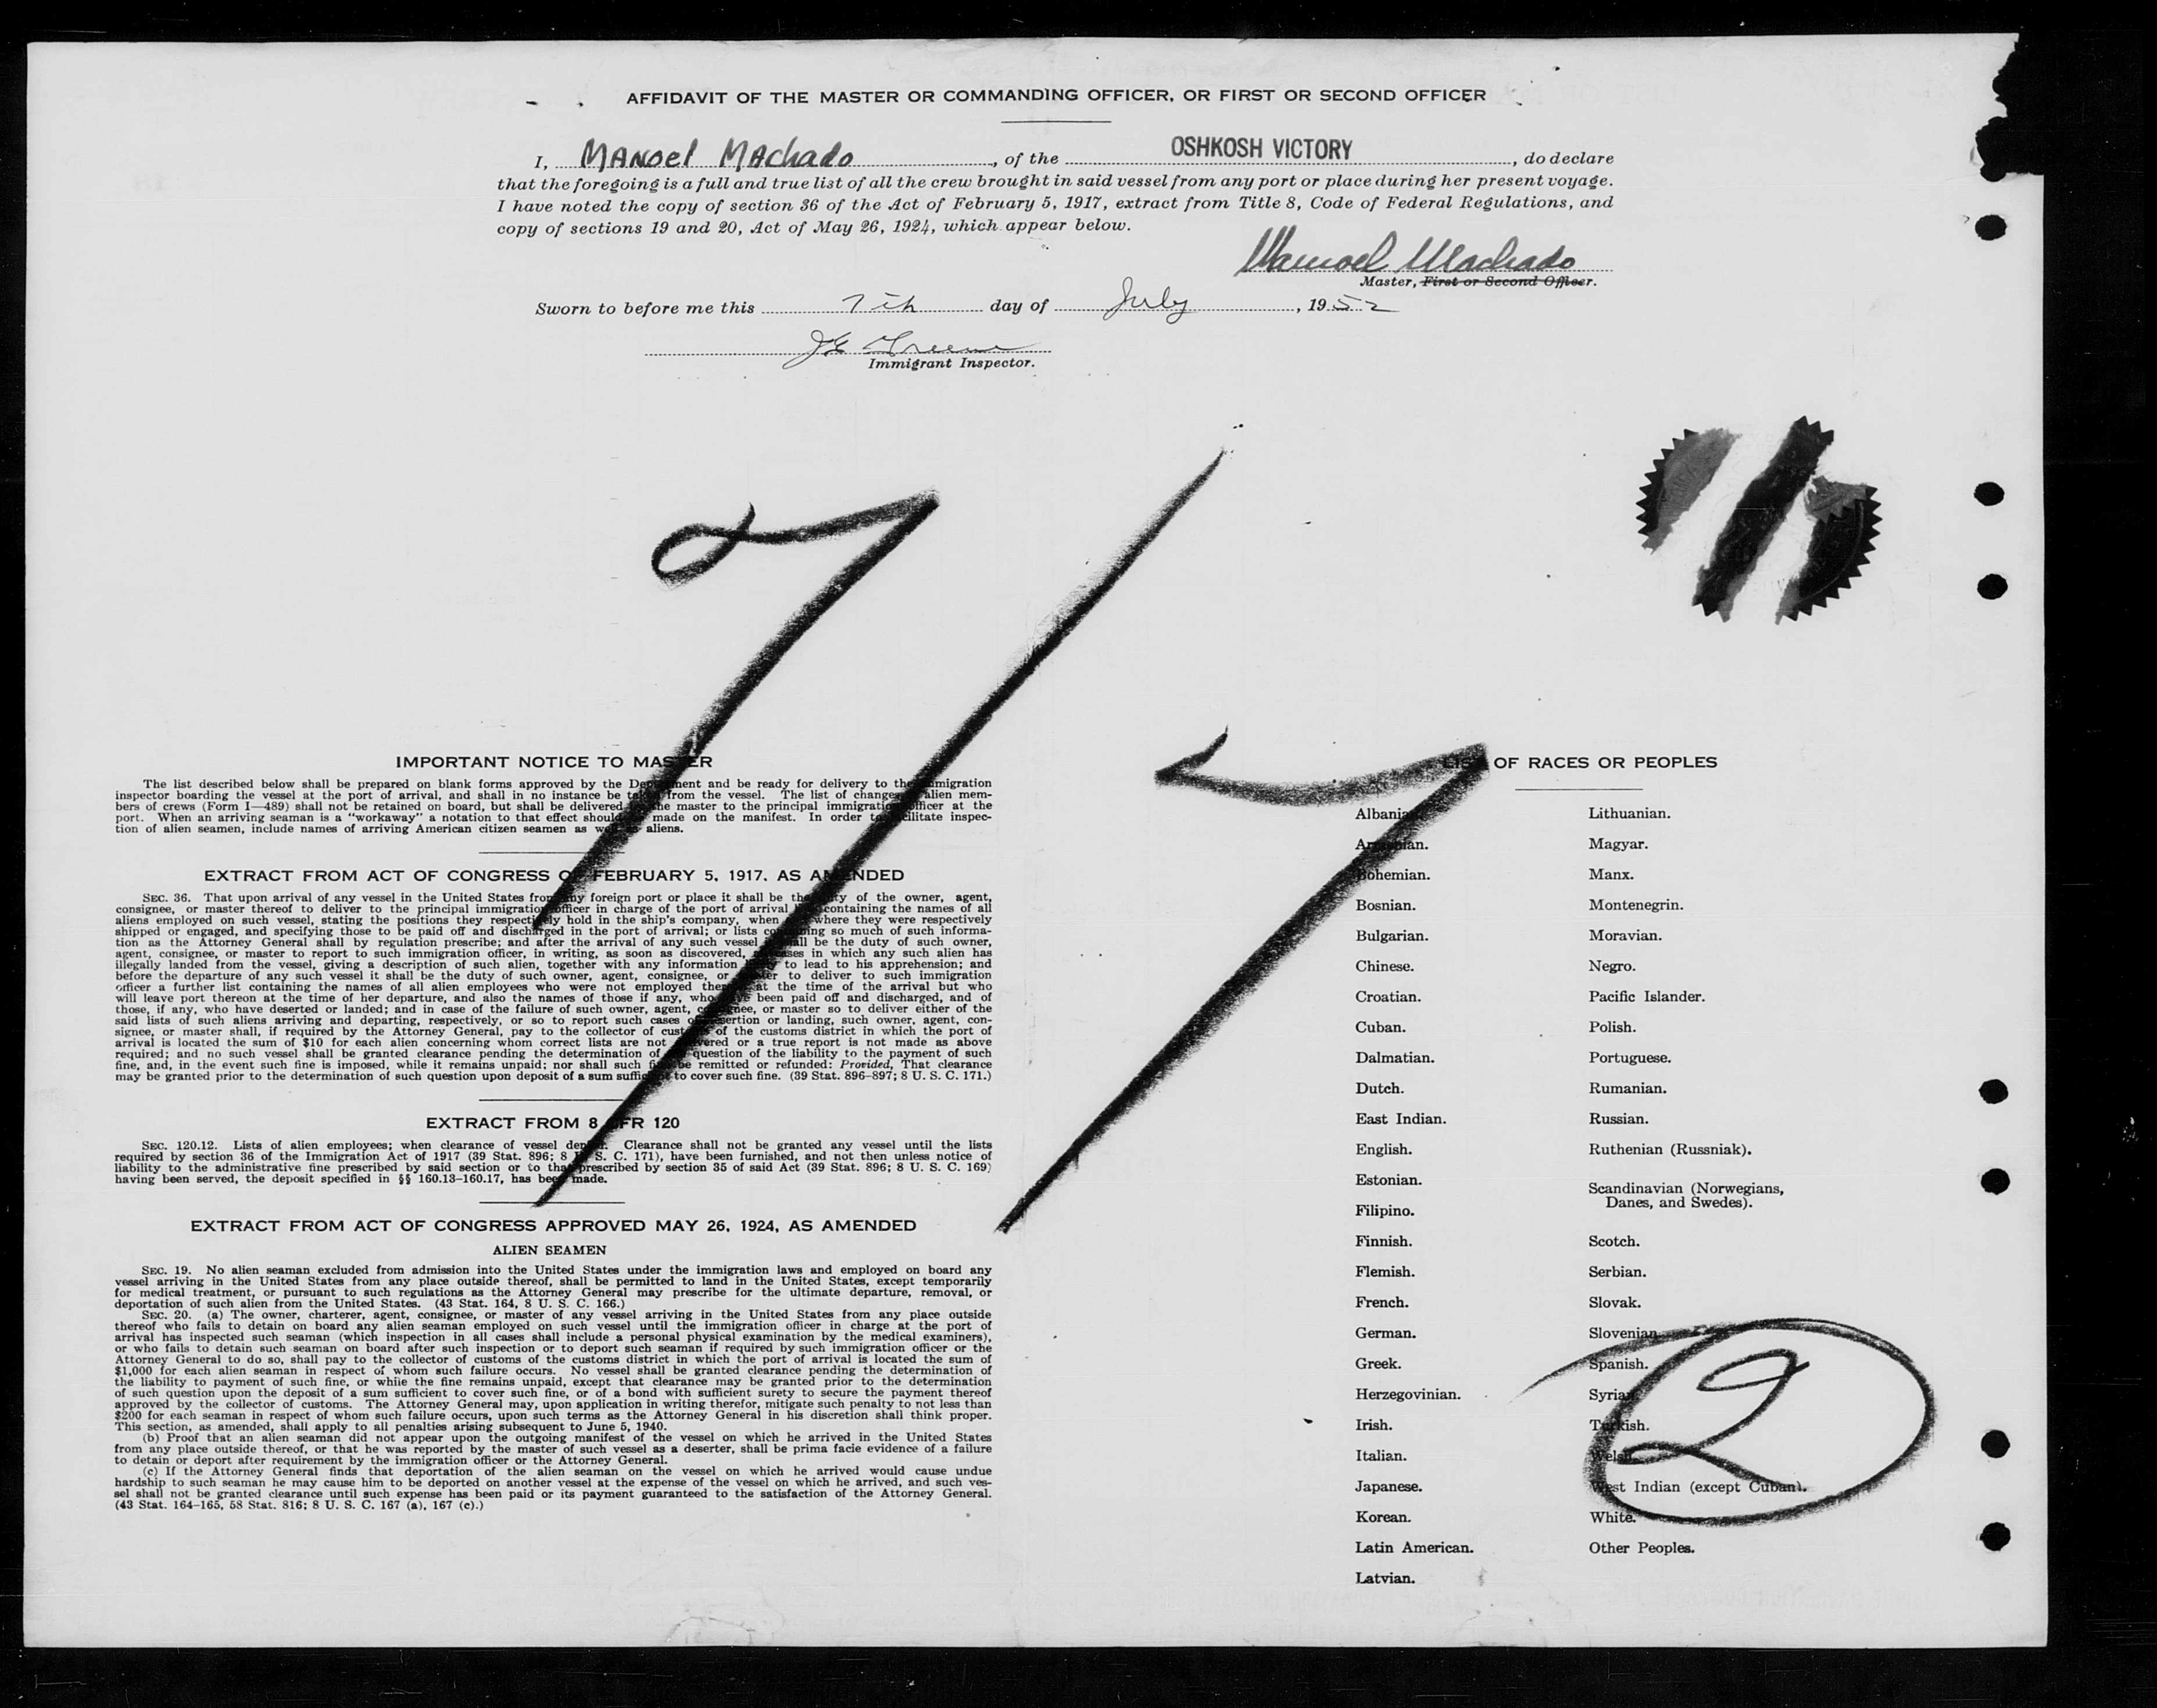 AFFIDAVIT OF THE MASTER OR COMMANDING OFFICER, OR FIRST OR SECOND OFFICER
I, MANOEL MACHADO, of the OSHKOSH VICTORY, do declare
that the foregoing is a full and true list of all the crew brought in said vessel from any port or place during her present voyage.
I have noted the copy of section 36 of the Act of February 5, 1917, extract from Title 8, Code of Federal Regulations, and
copy of sections 19 and 20, Act of May 26, 1924, which appear below.
Manoel Machado
Master, First or Second Officer.
Sworn to before me this 7th day of July, 1952
JE Greene
Immigrant Inspector.
7/7
IMPORTANT NOTICE TO MASTER
The list described below shall be prepared on blank forms approved by the Department and be ready for delivery to the immigration
inspector boarding the vessel at the port of arrival, and shall in no instance be taken from the vessel. The list of changes in alien mem-
bers of crews (Form I—489) shall not be retained on board, but shall be delivered by the master to the principal immigration officer at the
port. When an arriving seaman is a "workaway" a notation to that effect should be made on the manifest. In order to facilitate inspec-
tion of alien seamen, include names of arriving American citizen seamen as well as aliens.
EXTRACT FROM ACT OF CONGRESS OF FEBRUARY 5, 1917, AS AMENDED
SEC. 36. That upon arrival of any vessel in the United States from any foreign port or place it shall be the duty of the owner, agent,
consignee, or master thereof to deliver to the principal immigration officer in charge of the port of arrival lists containing the names of all
aliens employed on such vessel, stating the positions they respectively hold in the ship's company, when and where they were respectively
shipped or engaged, and specifying those to be paid off and discharged in the port of arrival; or lists containing so much of such informa-
tion as the Attorney General shall by regulation prescribe; and after the arrival of any such vessel it shall be the duty of such owner,
agent, consignee, or master to report to such immigration officer, in writing, as soon as discovered, all cases in which any such alien has
illegally landed from the vessel, giving a description of such alien, together with any information likely to lead to his apprehension; and
before the departure of any such vessel it shall be the duty of such owner, agent, consignee, or master to deliver to such immigration
officer a further list containing the names of all alien employees who were not employed thereon at the time of the arrival but who
will leave port thereon at the time of her departure, and also the names of those if any, who have been paid off and discharged, and of
those, if any, who have deserted or landed; and in case of the failure of such owner, agent, consignee, or master so to deliver either of the
said lists of such aliens arriving and departing, respectively, or so to report such cases of desertion or landing, such owner, agent, con-
signee, or master shall, if required by the Attorney General, pay to the collector of customs of the customs district in which the port of
arrival is located the sum of $10 for each alien concerning whom correct lists are not delivered or a true report is not made as above
required; and no such vessel shall be granted clearance pending the determination of the question of the liability to the payment of such
fine, and, in the event such fine is imposed, while it remains unpaid; nor shall such fine be remitted or refunded: Provided, That clearance
may be granted prior to the determination of such question upon deposit of a sum sufficient to cover such fine. (39 Stat. 896–897; 8 U. S. C. 171.)
EXTRACT FROM 8 CFR 120
SEC. 120.12. Lists of alien employees; when clearance of vessel denied. Clearance shall not be granted any vessel until the lists
required by section 36 of the Immigration Act of 1917 (39 Stat. 896; 8 U. S. C. 171), have been furnished, and not then unless notice of
liability to the administrative fine prescribed by said section or to that prescribed by section 35 of said Act (39 Stat. 896; 8 U. S. C. 169)
having been served, the deposit specified in §§ 160.13–160.17, has been made.
EXTRACT FROM ACT OF CONGRESS APPROVED MAY 26, 1924, AS AMENDED
ALIEN SEAMEN
SEC. 19. No alien seaman excluded from admission into the United States under the immigration laws and employed on board any
vessel arriving in the United States from any place outside thereof, shall be permitted to land in the United States, except temporarily
for medical treatment, or pursuant to such regulations as the Attorney General may prescribe for the ultimate departure, removal, or
deportation of such alien from the United States. (43 Stat. 164, 8 U. S. C. 166.)
SEC. 20. (a) The owner, charterer, agent, consignee, or master of any vessel arriving in the United States from any place outside
thereof who fails to detain on board any alien seaman employed on such vessel until the immigration officer in charge at the port of
arrival has inspected such seaman (which inspection in all cases shall include a personal physical examination by the medical examiners),
or who fails to detain such seaman on board after such inspection or to deport such seaman if required by such immigration officer or the
Attorney General to do so, shall pay to the collector of customs of the customs district in which the port of arrival is located the sum of
$1,000 for each alien seaman in respect of whom such failure occurs. No vessel shall be granted clearance pending the determination of
the liability to payment of such fine, or while the fine remains unpaid, except that clearance may be granted prior to the determination
of such question upon the deposit of a sum sufficient to cover such fine, or of a bond with sufficient surety to secure the payment thereof
approved by the collector of customs. The Attorney General may, upon application in writing therefor, mitigate such penalty to not less than
$200 for each seaman in respect of whom such failure occurs, upon such terms as the Attorney General in his discretion shall think proper.
This section, as amended, shall apply to all penalties arising subsequent to June 5, 1940.
(b) Proof that an alien seaman did not appear upon the outgoing manifest of the vessel on which he arrived in the United States
from any place outside thereof, or that he was reported by the master of such vessel as a deserter, shall be prima facie evidence of a failure
to detain or deport after requirement by the immigration officer or the Attorney General.
(c) If the Attorney General finds that deportation of the alien seaman on the vessel on which he arrived would cause undue
hardship to such seaman he may cause him to be deported on another vessel at the expense of the vessel on which he arrived, and such ves-
sel shall not be granted clearance until such expense has been paid or its payment guaranteed to the satisfaction of the Attorney General.
(43 Stat. 164–165, 58 Stat. 816; 8 U. S. C. 167 (a), 167 (c).)
LIST OF RACES OR PEOPLES
Albanian.
Armenian.
Bohemian.
Bosnian.
Bulgarian.
Chinese.
Croatian.
Cuban.
Dalmatian.
Dutch.
East Indian.
English.
Estonian.
Filipino.
Finnish.
Flemish.
French.
German.
Greek.
Herzegovinian.
Irish.
Italian.
Japanese.
Korean.
Latin American.
Latvian.
Lithuanian.
Magyar.
Manx.
Montenegrin.
Moravian.
Negro.
Pacific Islander.
Polish.
Portuguese.
Rumanian.
Russian.
Ruthenian (Russniak).
Scandinavian (Norwegians,
Danes, and Swedes).
Scotch.
Serbian.
Slovak.
Slovenian.
Spanish.
Syrian.
Turkish.
Welsh.
West Indian (except Cuban).
White.
Other Peoples.
2